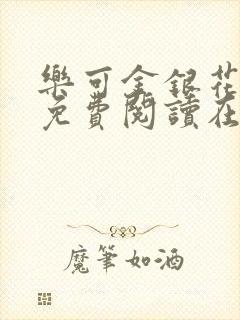 樂可金銀花
免費閱讀在
魔筆如酒